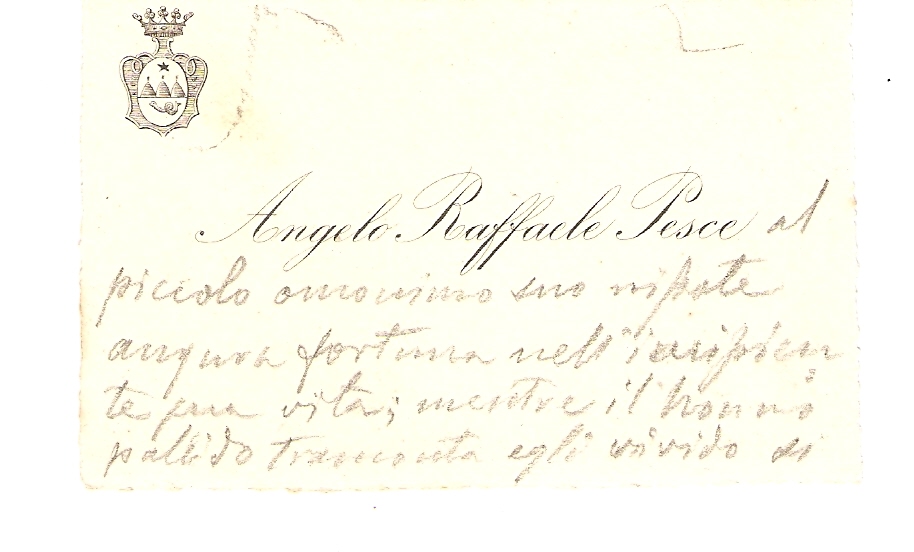 Angelo Raffaele Pesce al
piccolo omonimo suo nipote
augura fortuna nell'incipien
te sua vita; mentre il nonno
pallido tramonta egli vivido si